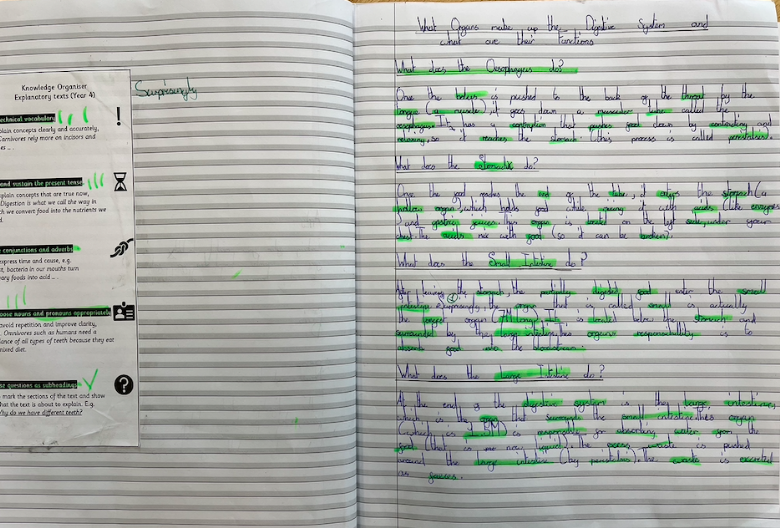 Knowledge Organiser
Explanatory texts (Year 4)
technical vocabulary
plain concepts clearly and accurately,
Carnivores rely more on incisors and
and sustain the present tense
xplain concepts that are true now,
Digestion is what we call the way in
ch we convert food into the nutrients we
conjunctions and adverbs
express time and cause, e.g.
t, bacteria in our mouths turn
ary foods into acid ...
oose nouns and pronouns appropriately
avoid repetition and improve clarity,
Omnivores such as humans need a
lance of all types of teeth because they eat
mixed diet.
se questions as subheadings
mark the sections of the text and show
hat the text is about to explain. E.g.
Why do we have different teeth?
Surprisingly
What Organs make up the Digestive System and
what are their Functions
What does the Oesophagus do?
Once the bolus is pushed to the back of the throat by the
tongue (a muscle), it goes down a muscular tube called the
oesophagus. It has a that food down by contracting and
relaxing, so it reaches the stomach (this process is called peristalsis).
What does the Stomach do?
Once the food reaches the end of the tube, it enters the stomach (a
hollow organ) which holds food while mixing it with acids (like enzymes
and gastric juices). This organ is on the left side, under your
chest. The acids mix with food (so it can be broken).
What does the Small Intestine do?
After leaving the stomach, the partially digested food enter the small
intestine. Surprisingly, the organ that is called small is actually
the largest organ (7M long). It is located below the stomach and
surrounded by the large intestine. This organs responsibility is to
absorb food into the bloodstream.
What does the Large Intestine do?
At the end of the digestive system is the large intestine,
which is the organ that surrounds the small intestine. This organ
(which is is responsible for absorbing water from the
food (that is now liquid). The excess waste is pushed
around the large intestine (by peristalsis). The waste is excreted
as faeces.